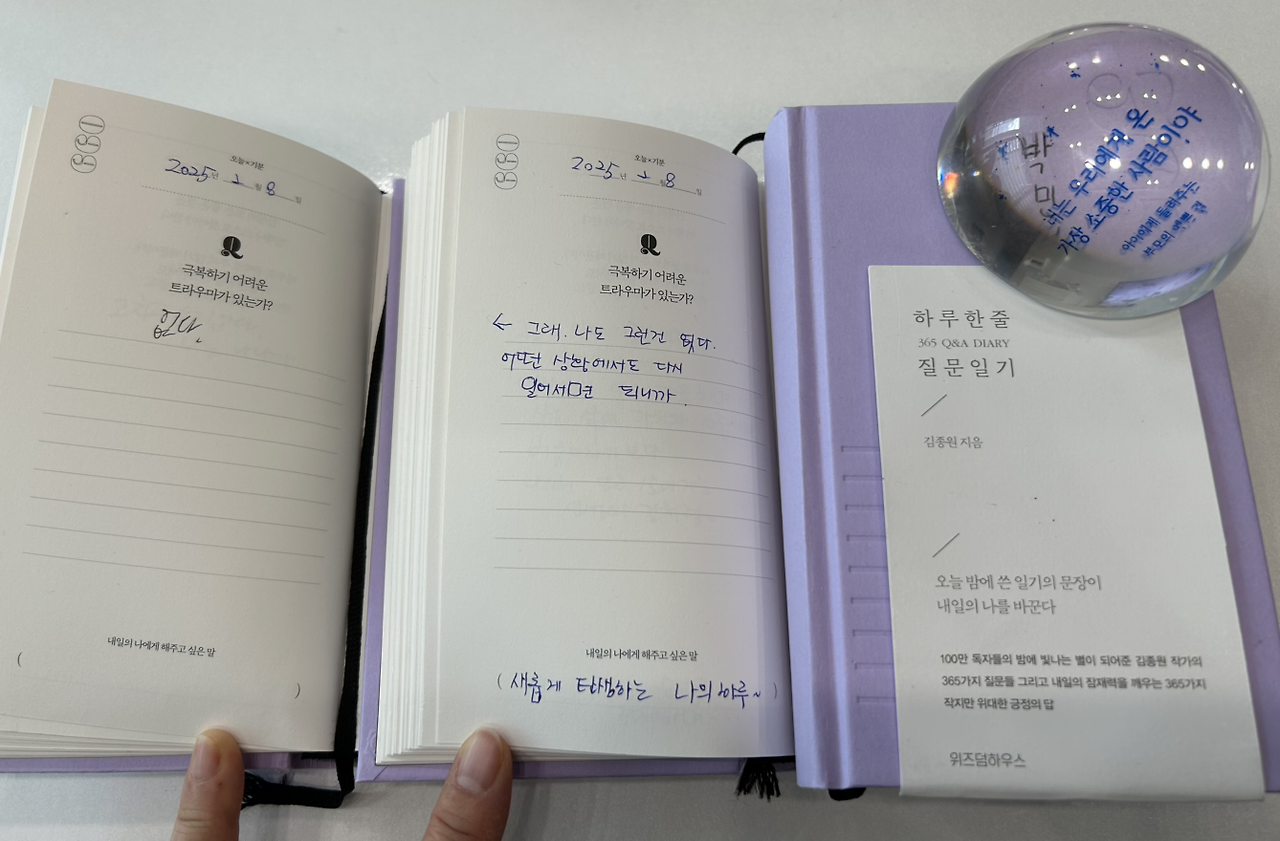 039
오늘×기분
2025년 2월 8일
Q
극복하기 어려운
트라우마가 있는가?
없다.
내일의 나에게 해주고 싶은 말
( )
039
오늘×기분
2025년 2월 8일
Q
극복하기 어려운
트라우마가 있는가?
← 그래. 나도 그런건 없다.
어떤 상황에서도 다시
일어서면 되니까.
내일의 나에게 해주고 싶은 말
( 새롭게 탄생하는 나의 하루~ )
우리에게 온
가장 소중한 사람이야
아이에게 들려주는
부모의 예쁜 말
하루 한 줄
365 Q&A DIARY
질문 일기
김종원 지음
오늘 밤에 쓴 일기의 문장이
내일의 나를 바꾼다
100만 독자들의 밤에 빛나는 별이 되어준 김종원 작가의
365가지 질문들 그리고 내일의 잠재력을 깨우는 365가지
작지만 위대한 긍정의 답
위즈덤하우스